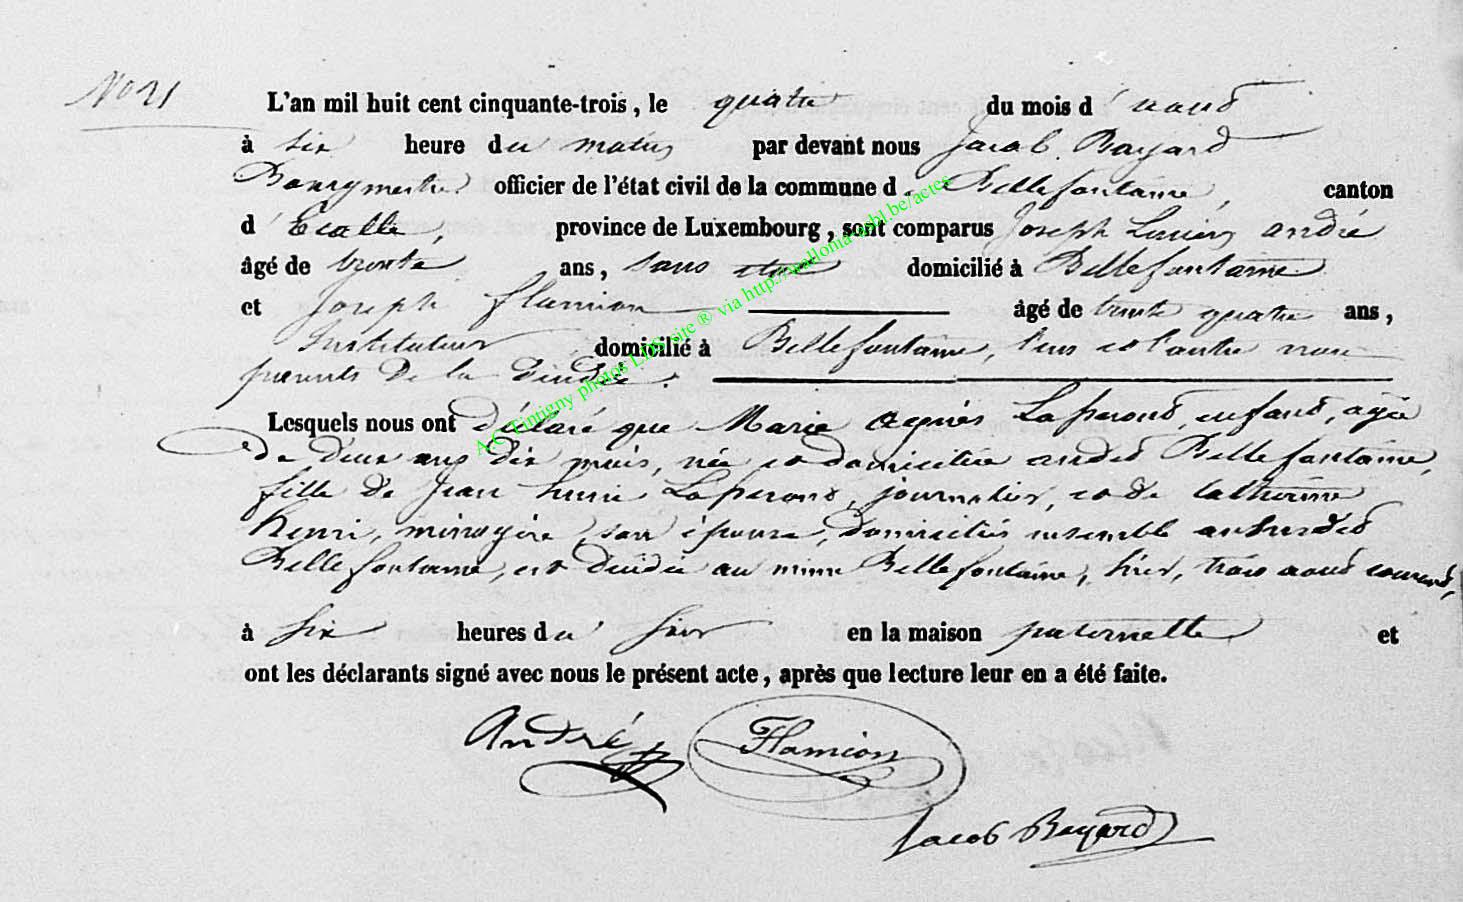 No 21
L'an mil huit cent cinquante-trois, le quatre du mois d'aout
à six heure du matin par devant nous Jacob Bayard
Bourgmestre officier de l'état civil de la commune d. Bellefontaine, canton
d'Etalle, province de Luxembourg, sont comparus Joseph Lucien André
âgé de trente ans, sans état domicilié à Bellefontaine
et Joseph Flamion âgé de trente quatre ans,
Instituteur domicilié à Bellefontaine, l'un et l'autre non
parents de la décédée.
Lesquels nous ont déclaré que Marie Agnès Laperout, enfant, agée
de deux ans dix mois, née et domiciliée audit Bellefontaine,
fille de Jean Laperout, journalier, et de Catherine
henri, ménagère, son épouse, domiciliés ensemble
Bellefontaine, est décédée au même Bellefontaine, hier, trois aout courant,
à six heures du soir en la maison paternelle et
ont les déclarants signé avec nous le présent acte, après que lecture leur en a été faite.
André Flamion
Jacob Bayard
A.C. Tintigny photos LDS site ® via http://walloma-asbl.be/actes